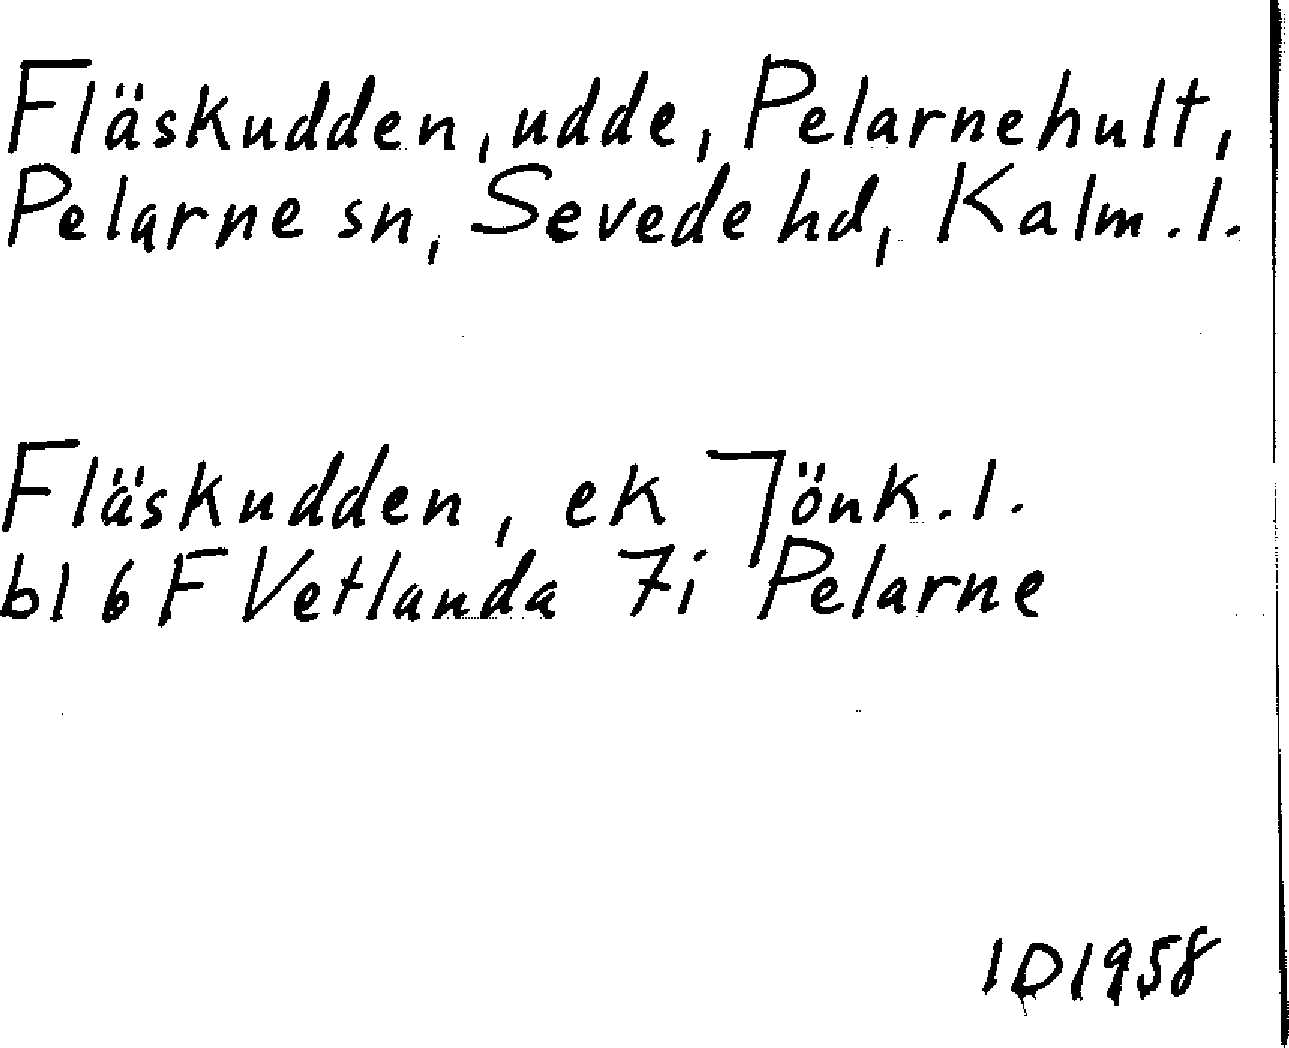 Fläskudden, udde, Pelarnehult,
Pelarne sn, Sevede hd, Kalm. l.
Fläskudden, ek Jönk. l.
bl 6 F Vetlanda 7i Pelarne
ID 1958